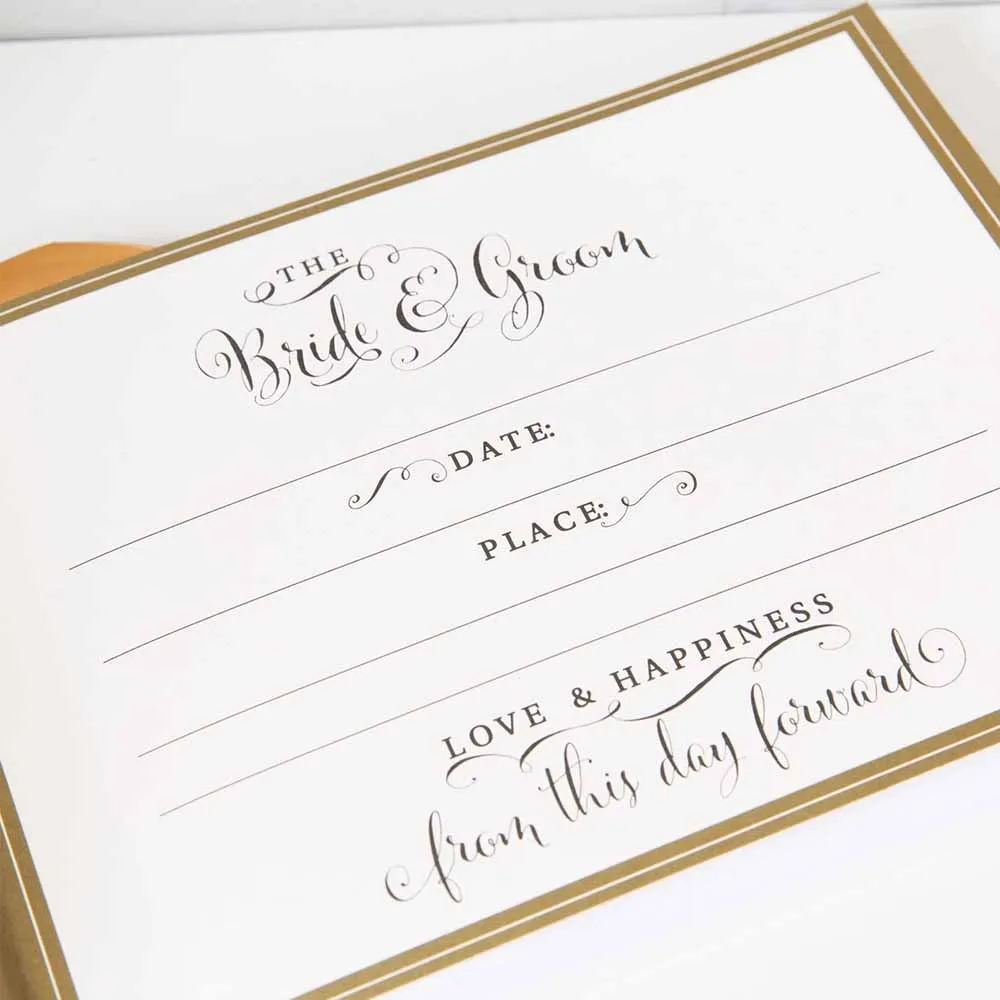 THE
Bride & Groom
DATE:
PLACE:
LOVE & HAPPINESS
from this day forward